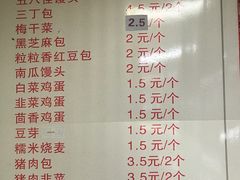 五八佳馒头
三丁包 1.5元/2个
梅干菜 2.5/个
黑芝麻包 2元/个
粒粒香红豆包 2元/个
南瓜馒头 2元/个
白菜鸡蛋 1.5元/个
韭菜鸡蛋 1.5元/个
茴香鸡蛋 1.5元/个
豆芽 1.5元/个
糯米烧麦 1.5元/个
猪肉包 3.5元/2个
猪肉韭菜 3.5元/2个